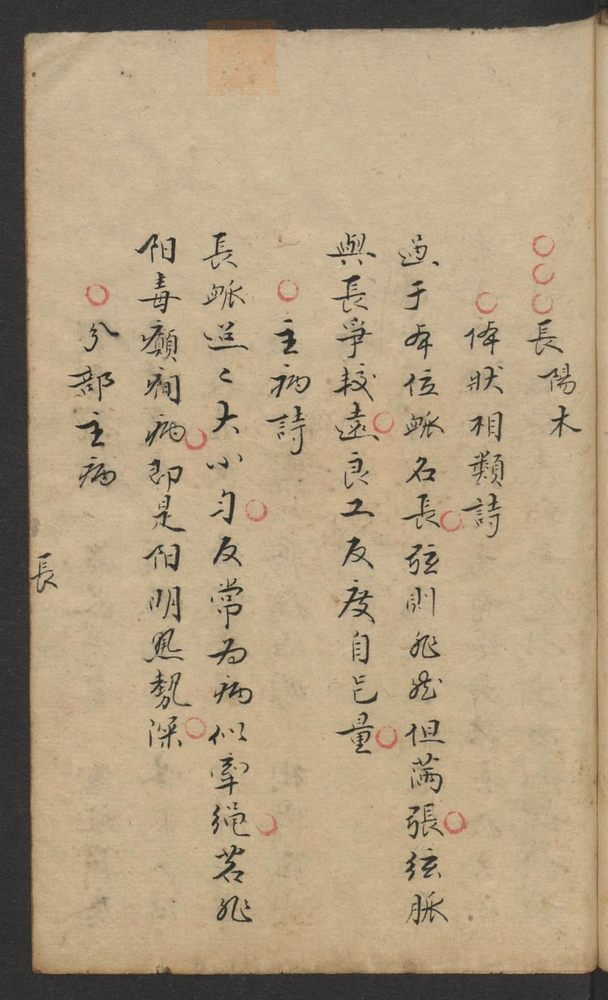 ○○○長陽木
○体狀相類詩
過于本位脈名長○弦則非然但满張○弦脈
與長爭較遠○良工反度自己量○
○主病詩
長脈迢〻大小匀○反常为病似牽绳○若非
阳毒癲痫病○即是阳明热勢深○
○分部主病
長